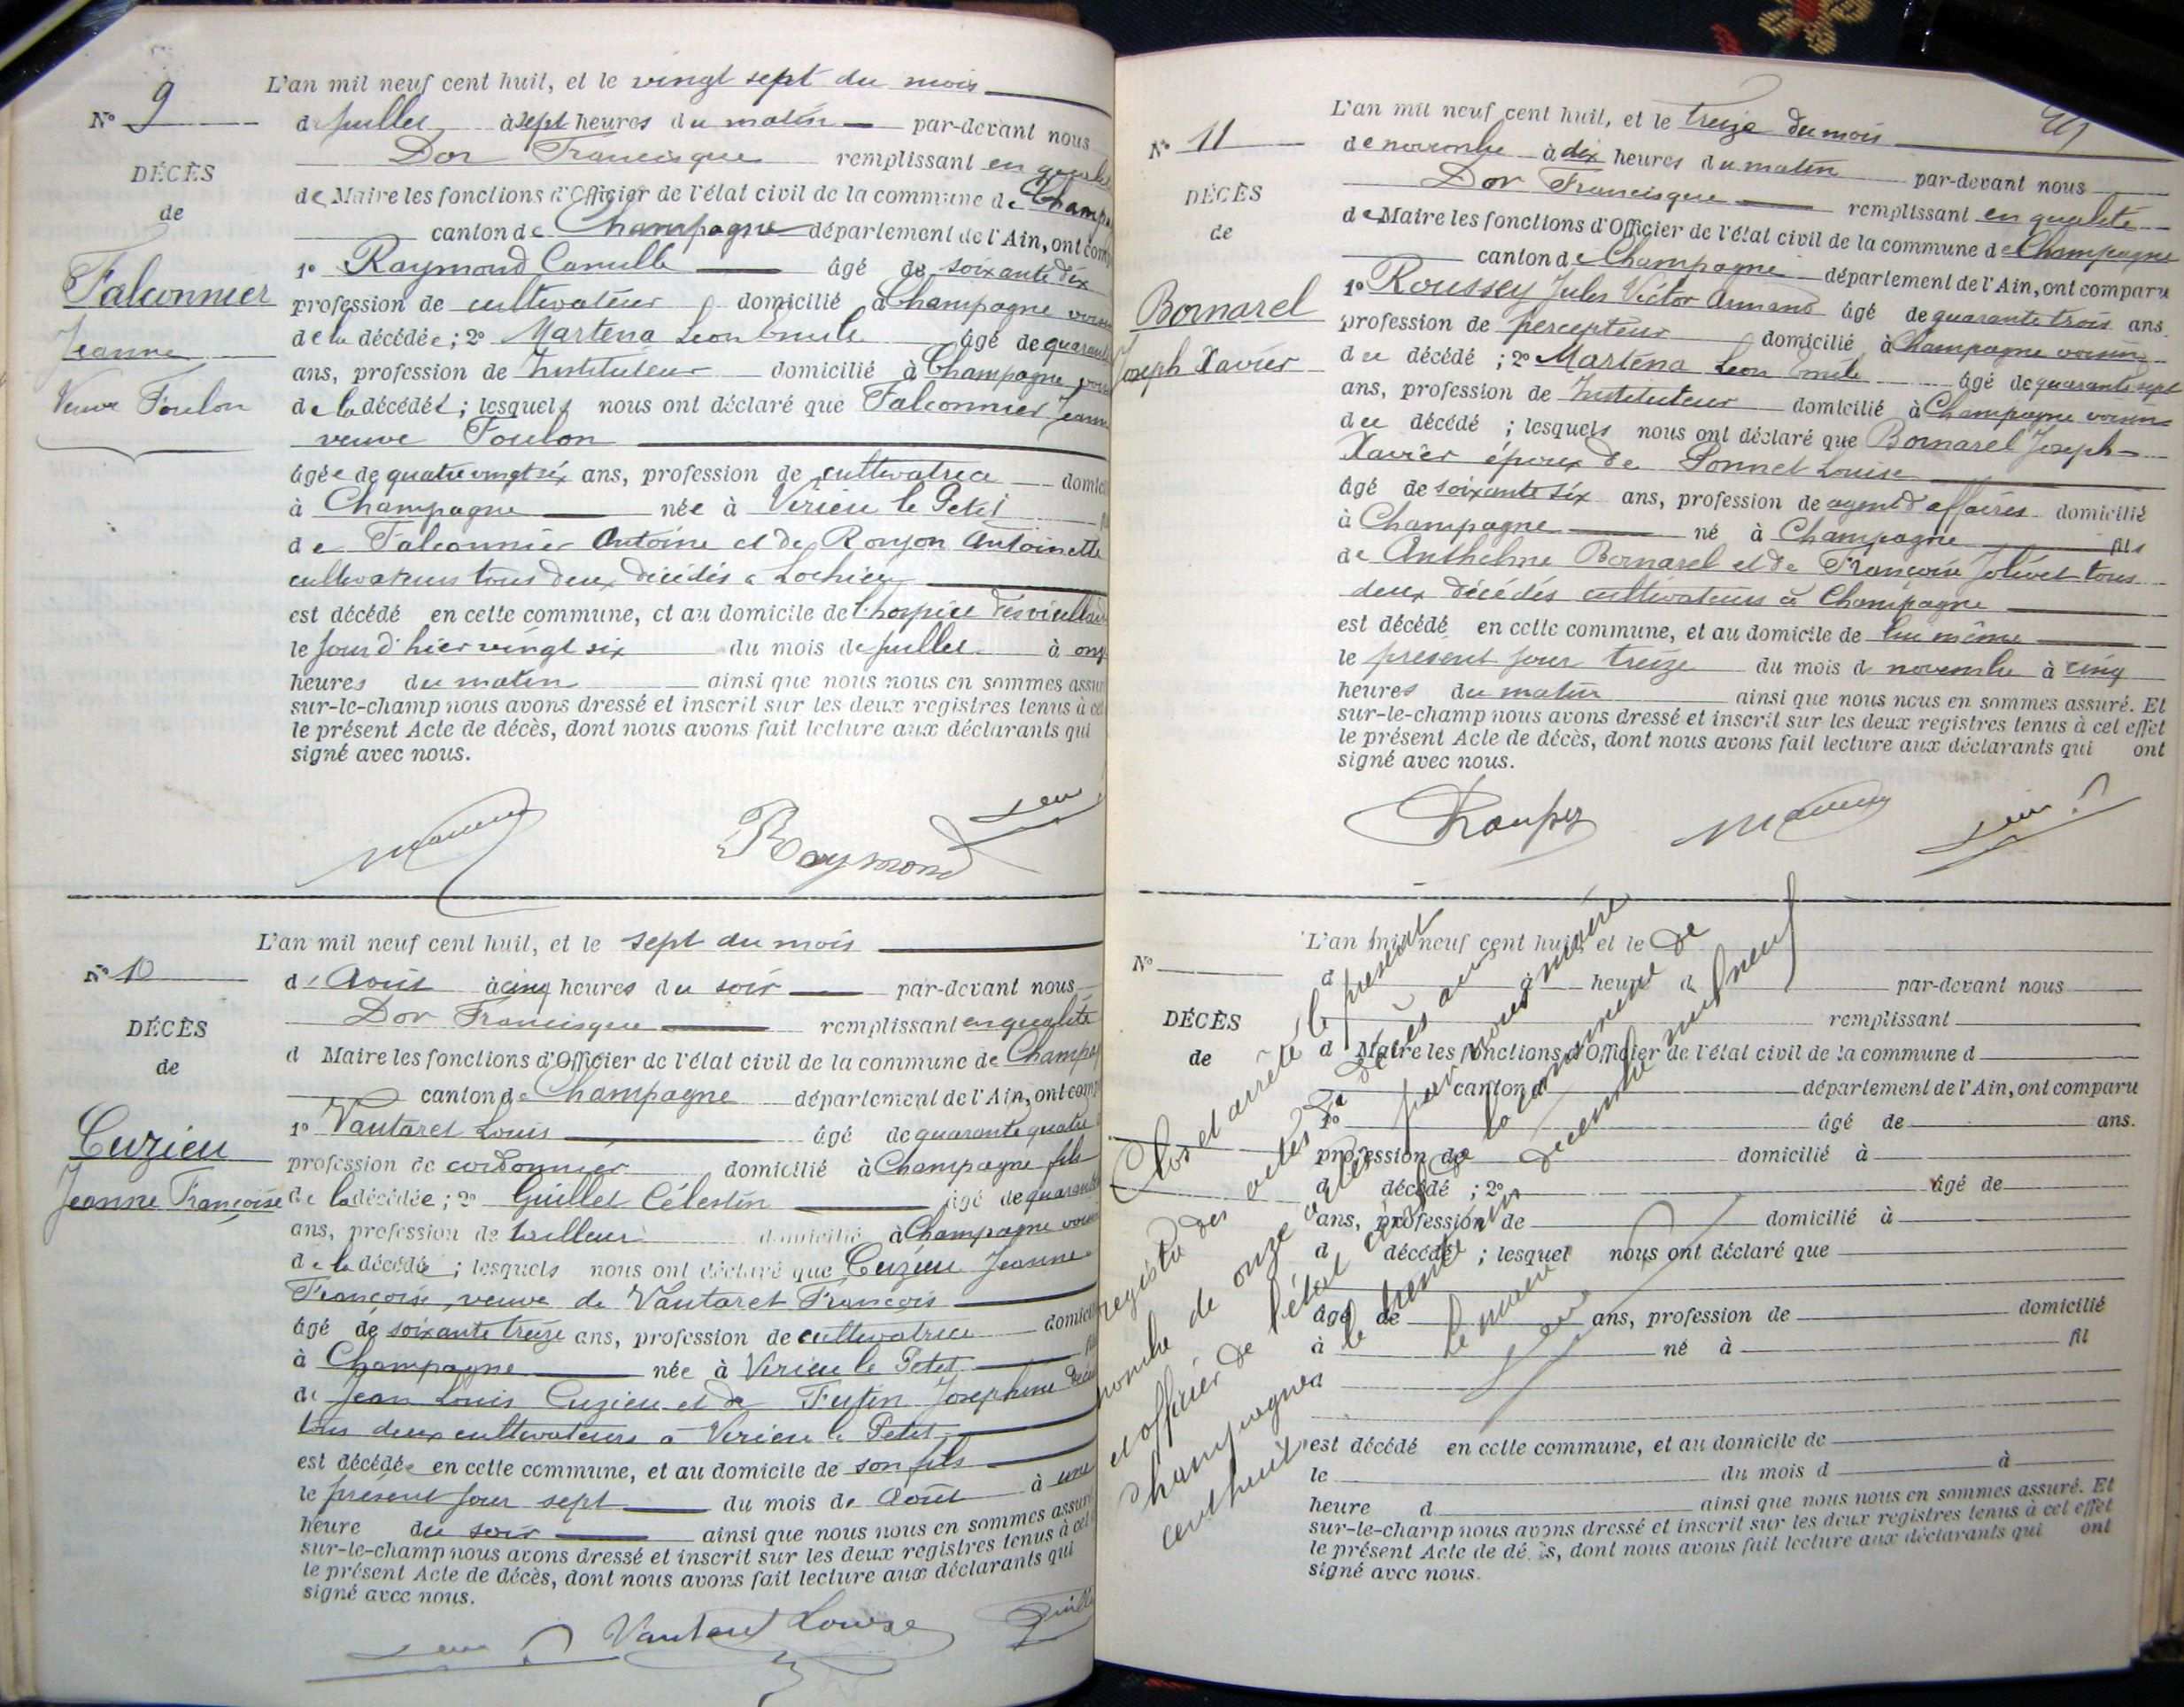 L'an mil neuf cent huit, et le vingt sept du mois
N° 9
de juillet à sept heures du matin par-devant nous
Dor Francisque remplissant en qualité
DÉCÈS
de Maire les fonctions d'Officier de l'état civil de la commune de Champ
de
canton de Champagne département de l'Ain, ont comp
1° Raymond Camille âgé de soixante dix
Falconnier
profession de cultivateur domicilié à Champagne voisin
Jeanne
de la décédée ; 2° Martena Leon Emile âgé de quarante
ans, profession de Instituteur domicilié à Champagne voisin
Veuve Foulon
de la décédée ; lesquels nous ont déclaré que Falconnier Jeanne
veuve Foulon
âgée de quatre vingt six ans, profession de cultivatrice domicil
à Champagne née à Virieu le Petit
de Falconnier Antoine et de Roujon Antoinette
cultivateurs tous deux décédés à Lochieu
est décédé en cette commune, et au domicile de l'hospice des vieillards
le jour d'hier vingt six du mois de juillet à onze
heures du matin ainsi que nous nous en sommes assur
sur-le-champ nous avons dressé et inscrit sur les deux registres tenus à cet
le présent Acte de décès, dont nous avons fait lecture aux déclarants qui
signé avec nous.
Raymond
L'an mil neuf cent huit, et le sept du mois
N° 10
d' Août à cinq heures du soir par-devant nous
Dor Francisque remplissant en qualité
DÉCÈS
d Maire les fonctions d'Officier de l'état civil de la commune de Champag
de
canton de Champagne département de l'Ain, ont comp
1° Vantaret Louis âgé de quarante quatre
Cuzieu
profession de cordonnier domicilié à Champagne fils
Jeanne Françoise
de la décédée ; 2° Guillet Célestin âgé de quarante
ans, profession de tailleur domicilié à Champagne voisin
de la décédée ; lesquels nous ont déclaré que Cuzieu Jeanne
Françoise, veuve de Vantaret François
âgé de soixante treize ans, profession de cultivatrice domicil
à Champagne née à Virieu le Petit
de Jean Louis Cuzieu et de Futin Josephine décéd
tous deux cultivateurs à Virieu le Petit
est décédée en cette commune, et au domicile de son fils
le présent jour sept du mois de Août à une
heure du soir ainsi que nous nous en sommes assuré
sur-le-champ nous avons dressé et inscrit sur les deux registres tenus à cet
le présent Acte de décès, dont nous avons fait lecture aux déclarants qui
signé avec nous.
Vantaret Louis
L'an mil neuf cent huit, et le treize du mois
N° 11
de novembre à dix heures du matin par-devant nous
Dor Francisque remplissant en qualité
DÉCÈS
de Maire les fonctions d'Officier de l'état civil de la commune de Champagne
de
canton de Champagne département de l'Ain, ont comparu
1° Roussey Jules Victor Armand âgé de quarante trois ans.
Bornarel
profession de percepteur domicilié à Champagne voisin
Joseph Xavier
du décédé ; 2° Martena Leon Emile âgé de quarante sept
ans, profession de Instituteur domicilié à Champagne voisin
du décédé ; lesquels nous ont déclaré que Bornarel Joseph
Xavier époux de Sonnet Louise
âgé de soixante six ans, profession de agent d'affaires domicilié
à Champagne né à Champagne fils
de Anthelme Bornarel et de Françoise Jolivet tous
deux décédés cultivateurs à Champagne
est décédé en cette commune, et au domicile de lui même
le présent jour treize du mois d novembre à cinq
heures du matin ainsi que nous nous en sommes assuré. Et
sur-le-champ nous avons dressé et inscrit sur les deux registres tenus à cet effet
le présent Acte de décès, dont nous avons fait lecture aux déclarants qui ont
signé avec nous.
Roussey
L'an mil neuf cent huit, et le
N°
d à heure d par-devant nous
DÉCÈS
remplissant
de
d Maire les fonctions d'Officier de l'état civil de la commune d
canton d département de l'Ain, ont comparu
1° âgé de ans.
profession de domicilié à
d décédé ; 2° âgé de
ans, profession de domicilié à
d décédé ; lesquel nous ont déclaré que
âgé de ans, profession de domicilié
à né à fil
d
est décédé en cette commune, et au domicile de
le du mois d à
heure d ainsi que nous nous en sommes assuré. Et
sur-le-champ nous avons dressé et inscrit sur les deux registres tenus à cet effet
le présent Acte de décès, dont nous avons fait lecture aux déclarants qui ont
signé avec nous.
Clos et arrêté le présent
registre des actes de décès au
nombre de onze actes par nous maire
et officier de l'état civil de la commune de
Champagne le trente un décembre mil neuf
cent huit
Le maire